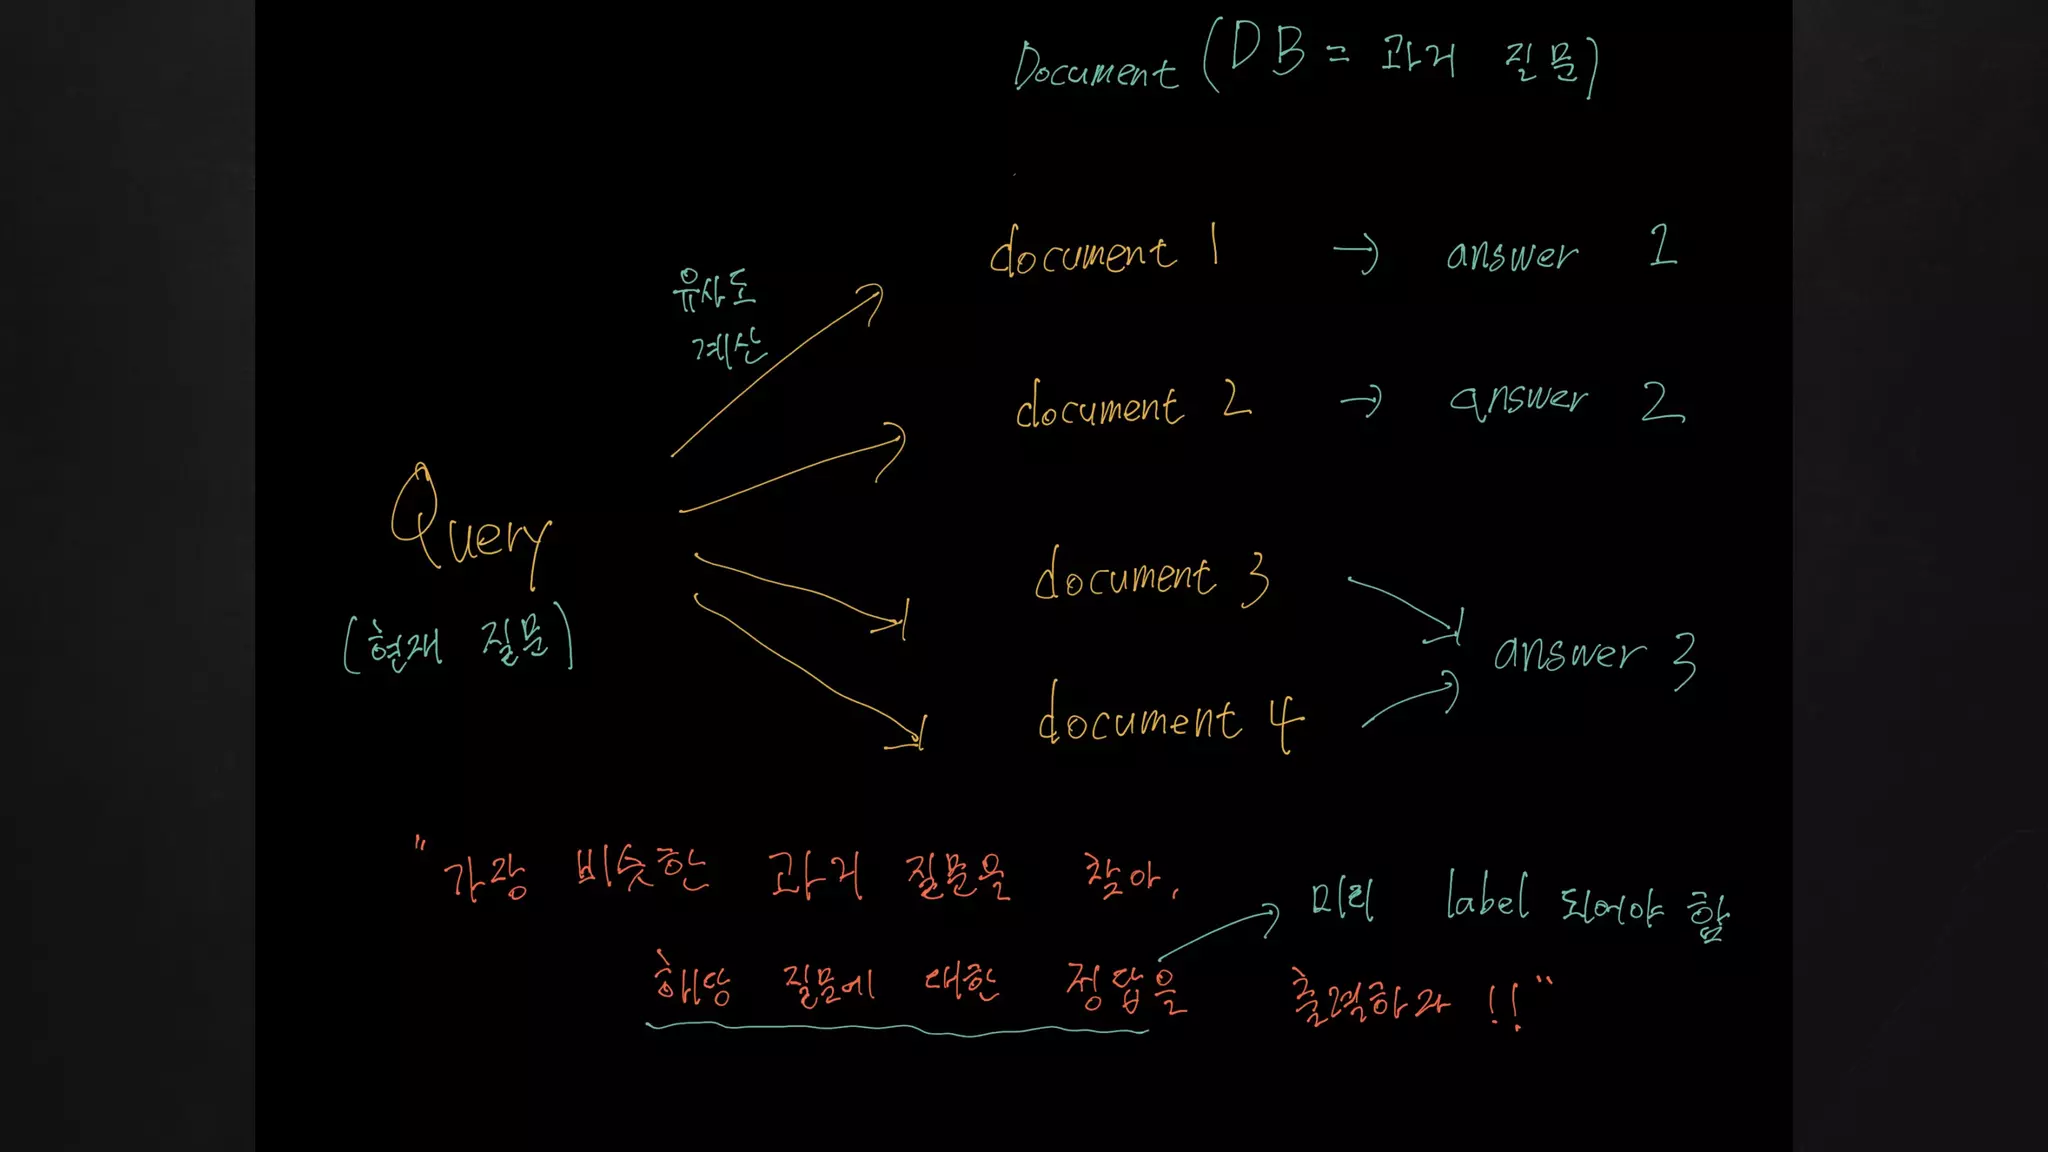 Document (DB = 과거 질문)
유사도
계산
document 1 → answer 1
document 2 → answer 2
Query
(현재 질문)
document 3
answer 3
document 4
"가장 비슷한 과거 질문을 찾아,
미리 label 되어야 함
해당 질문에 대한 정답을 출력하라!!"